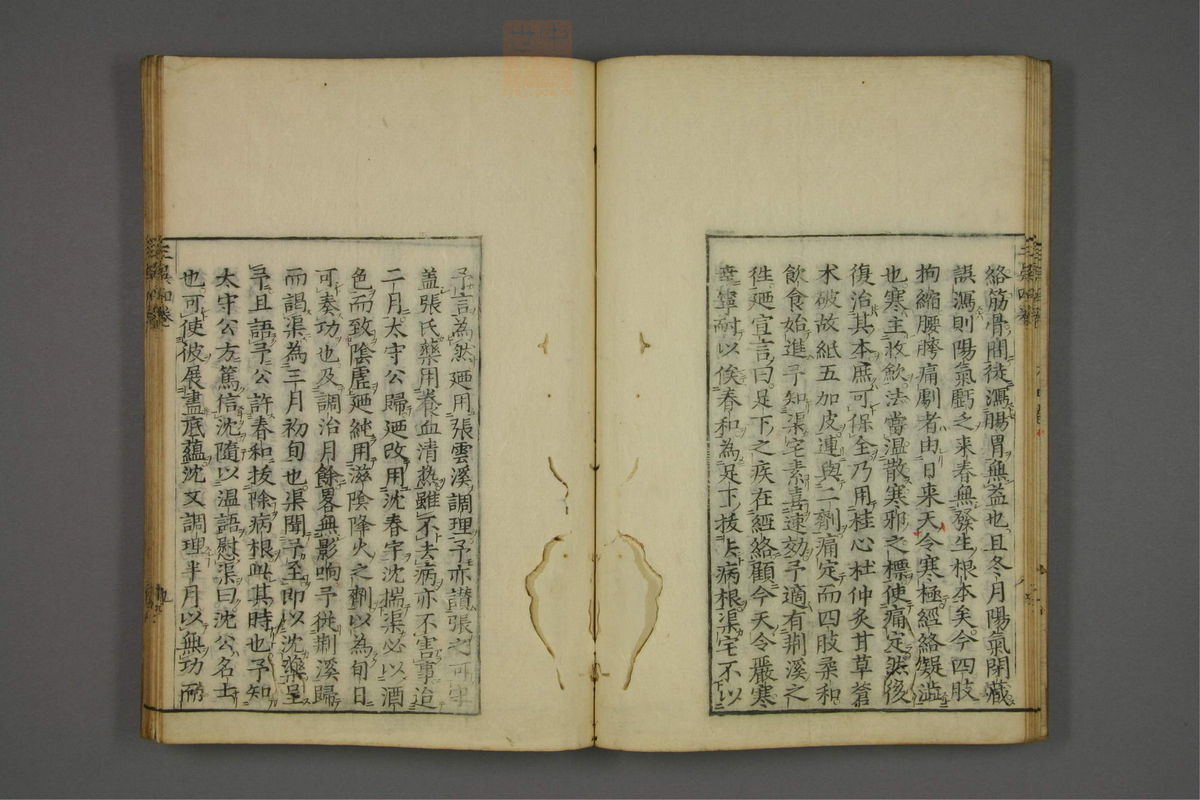 絡筋骨間徒瀉腸胃無益也且冬月陽氣閉藏
誤瀉則陽氣虧乏来春無發生根本矣今四肢
拘縮腰胯痛劇者由日来天令寒極經絡凝澁
也寒主收歛法當温散寒邪之標使痛定然後
復治其本庶可保全乃用桂心杜仲炙甘草蒼
术破故紙五加皮連與二劑痛定而四肢柔和
飲食始進予知渠宅素喜速効予適有荆溪之
徃廼宣言曰足下之疾在經絡顧今天令嚴寒
寧耐以俟春和為足下拔去病根渠宅不以
予言為然廼用張雲溪調理予亦讃張之可
盖張氏藥用養血清熱雖不去病亦不害事迨
二月太守公歸廼改用沈春宇沈揣渠必以酒
色而致陰虚廼純用滋陰降火之劑以為旬日
可奏功也及調治月餘畧無影响予從荆溪歸
而謁渠為三月初旬也渠聞予至即以沈藥呈
予且語予公許春和拔除病根此其時也予知
太守公方篤信沈隨以温語慰渠曰沈公名士
也可使彼展盡底蘊沈又調理半月以無功而